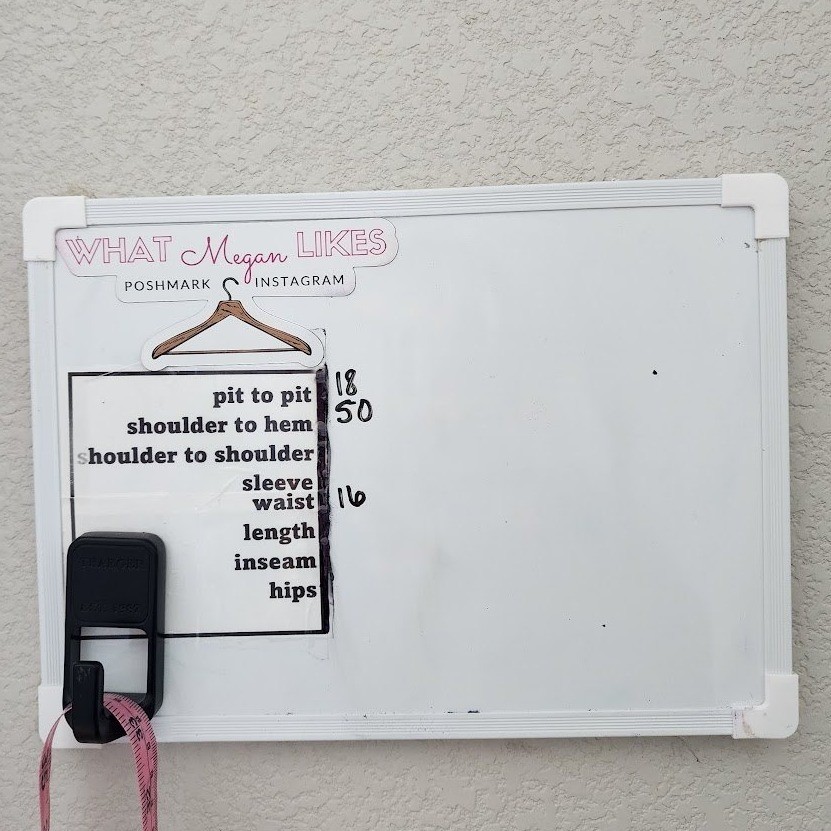 WHAT Megan LIKES
POSHMARK INSTAGRAM
pit to pit 18
shoulder to hem 50
shoulder to shoulder
sleeve
waist 16
length
inseam
hips